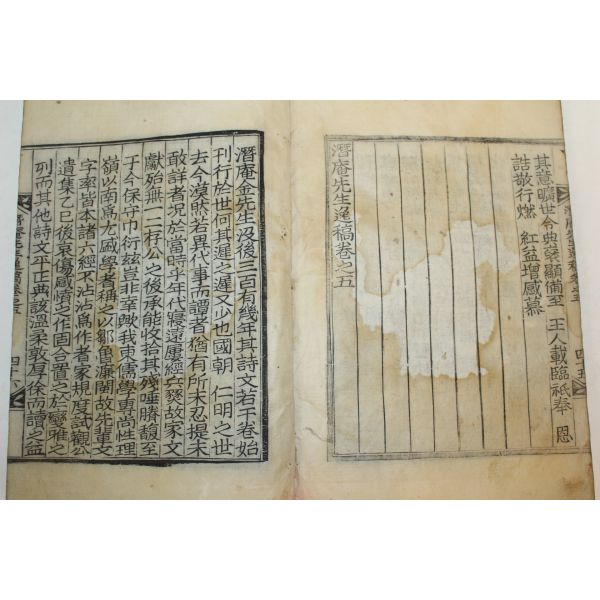 其意曠世令典褒顯備至 王人載臨祗奉 恩
誥敬行燃 紅益增感慕
潛庵先生逸稿卷之五
四十五
潛庵金先生沒後三百有幾年其詩文若干卷始
刊行於世何其遲之遲又少也國朝 仁明之世
去今漠然若異代事而讀者猶有所未忍提未
敢詳者况於當時乎年代寢遠屢經兵燹故家文
獻殆無一二存公之後承能收拾其殘唾賸馥至
于今保守巾衍玆豈非幸歟我東儒學專尚性理
嶺以南爲尤盛學者稱之以鄒魯濂閩故先軰文
字率皆本諸六經不沾沾爲作者家規度試觀公
遺集乙巳後哀傷感憤之作固合置之於變雅之
列而其他詩文平正典該溫柔敦厚徐而讀之益
潛庵先生逸稿卷之五
四十六